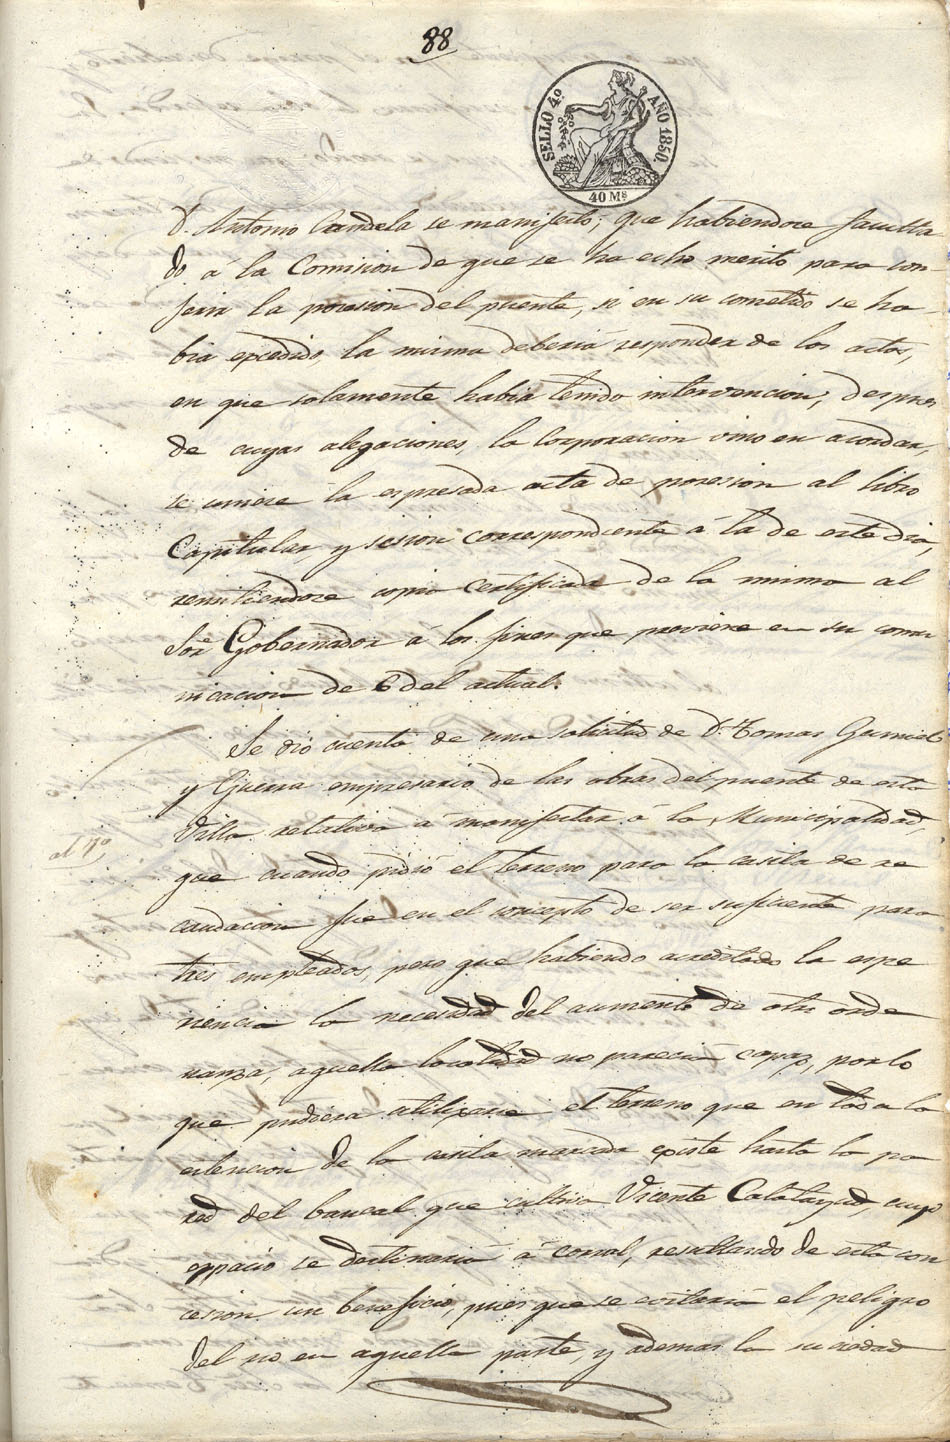 88
SELLO 4º. AÑO 1850.
40 Ms
D. Antonio Candela se manifestó; que habiendose faculta-
do á la Comision de que se ha echo merito para con-
ferir la posesion del puente, si en su cometido se ha-
bia excedido, la misma deberia responder de los actos,
en que solamente habia tenido intervencion; despues
de cuyas alegaciones, la Corporacion vino en acordar,
se uniese la espresada acta de posesion al libro
Capitular, y sesion correspondiente á la de este dia,
remitiendose copia certificada de la misma al
Sor. Gobernador á los fines que previene en su comu
nicacion de 6 del actual.
Se dió cuenta de una solicitud de D. Tomas Gumiel
y Guerra empresario de las obras del puente de esta
Villa relativa á manifestar á la Municipalidad,
al 7º,
que cuando pidió el terreno para la casita de re
caudacion fue en el concepto de ser suficiente para
tres empleados, pero que habiendo acreditado la espe
riencia la necesidad del aumento de otro orde
nanza, aquella localidad no parecia capaz, por lo
que pudiera utilizarse el terreno que en toda la
estencion de la casita marcada existe hasta la pa
red del bancal que cultiva Vicente Calatayud, cuyo
espacio se destinaria á corral, resultando de esta con
cesion un beneficio, pues que se evitaria el peligro
del rio en aquella parte, y ademas la suciedad